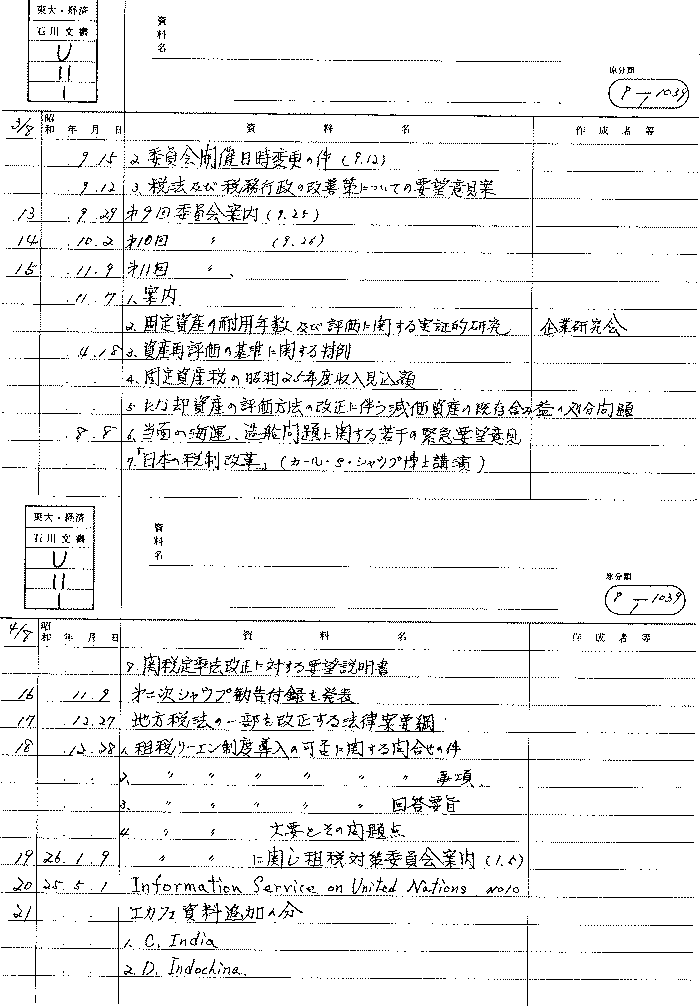 東大・経済
石川文書
U
11
1
資料名
原分類
P-1-1039
3/8 昭和 年 月 日 資料名 作成者等
9 15 2. 委員会開催日時変更の件 (9.12)
9.12 3. 税法及び税務行政の改善策についての要望意見案
13 9.29 第9回委員会案内 (9.25)
14 10.2 第10回 〃 (9.26)
15 11.9 第11回 〃
11.7 1. 案内
2. 固定資産の耐用年数及び評価に関する実証的研究 企業研究会
4.18 3. 資産再評価の基準に関する特例
4. 固定資産税の昭和25年度収入見込額
5. 却資産の評価方法の改正に伴う減価資産の既存含み益の処分問題
8.8 6. 当面の海運、造船問題に関する若干の緊急要望意見
7. 「日本の税制改革」 (カール・S・シャウプ博士講演)
東大・経済
石川文書
U
11
1
資料名
原分類
P-1-1039
4/8 昭和 年 月 日 資料名 作成者等
8. 関税定率法改正に対する要望説明書
16 11.9 第二次シャウプ勧告付録を発表
17 12.27 地方税法の一部を改正する法律案要綱
18 12.28 1. 租税リーエン制度導入の可否に関する問合せの件
2. 〃 〃 〃 〃 〃 〃 事項
3. 〃 〃 〃 〃 〃 回答要旨
4. 〃 〃 大要とその問題点
19 26.1.9 〃 〃 に関し租税対策委員会案内 (1.5)
20 25.5.1 Information Service on United Nations No10
21 エカフェ資料追加の分
1. C. India
2. D. Indochina